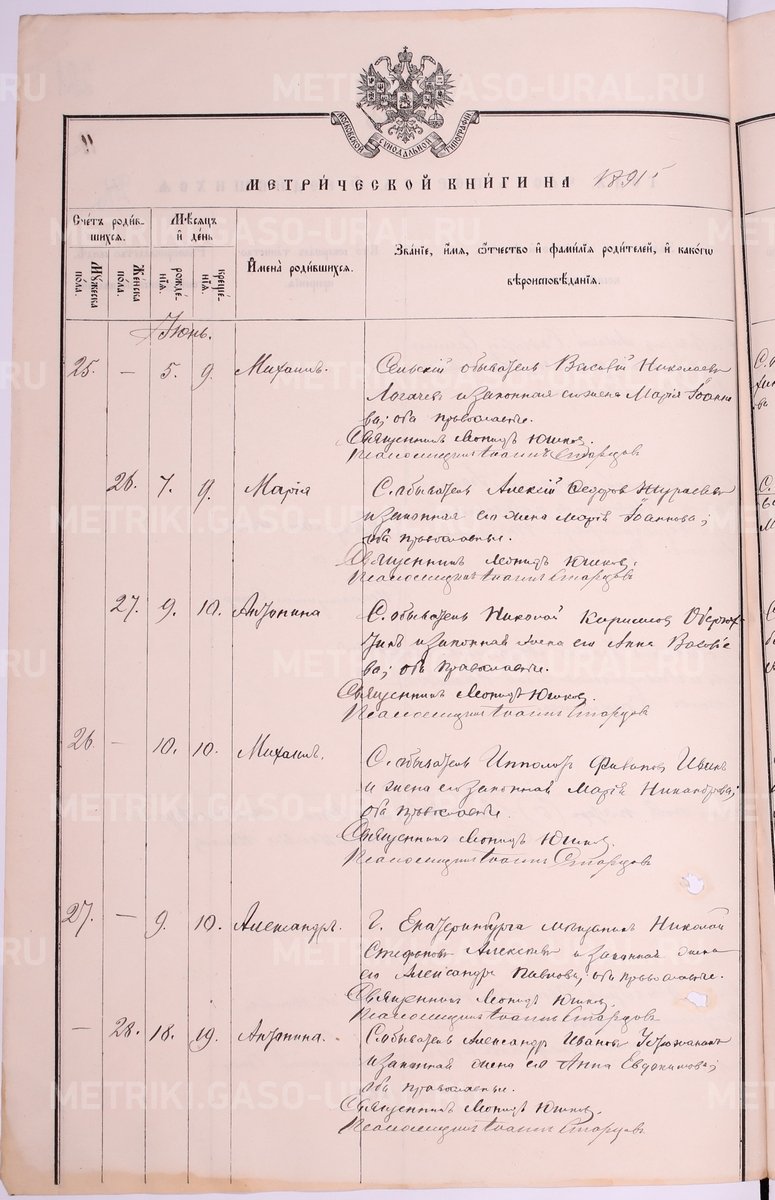 METRIKI.GASO-URAL.RU
МОСКОВСКОЙ СУНОДАЛЬНОЙ ТИПОГРАФІИ
МЕТРИ́ЧЕСКОЙ КНИ́ГИ НА 1891 г
Счетъ роди́вшихся.
Мѣсяцъ и҆ де́нь
И҆мена̀ роди́вшихся.
Зва́нїе, и҆́мя, ѻ҆́тчество и҆ фами́лїя роди́телей, и҆ како́гѡ вѣроисповѣ́данїя.
Мꙋжеска по́ла.
Же́нска по́ла.
рожде́нїѧ.
креще́нїѧ.
Іюнь.
25. — 5. 9. Михаилъ. Сельскій обыватель Василій Николаевъ
Логачевъ и законная его жена Марія Іоанно
ва; оба православные.
Священникъ Леонидъ Юшковъ.
Псаломщикъ Іоаннъ Старцовъ
26. 7. 9. Марія С. обыватель Алексій Федоровъ Журавлевъ
и законная его жена Марія Іоаннова;
оба православные.
Священникъ Леонидъ Юшковъ.
Псаломщикъ Іоаннъ Старцовъ
27. 9. 10. Антонина С. обыватель Николай
и законная жена его Анна Василіе
ва; оба православные.
Священникъ Леонидъ Юшковъ.
Псаломщикъ Іоаннъ Старцовъ
26. — 10. 10. Михаилъ. С. обыватель Ипполитъ
и жена его законная Марія Никандрова;
оба православные.
Священникъ Леонидъ Юшковъ.
Псаломщикъ Іоаннъ Старцовъ
27. — 9. 10. Александръ. г. Екатеринбурга мѣщанинъ Николай
Стефановъ Алексѣевъ и законная жена
его Александра Павлова; оба православные.
Священникъ Леонидъ Юшковъ.
Псаломщикъ Іоаннъ Старцовъ
— 28. 18. 19. Антонина. С. обыватель Александръ Ивановъ Устюжанинъ
и законная жена его Анна Евдокимова;
оба православные.
Священникъ Леонидъ Юшковъ.
Псаломщикъ Іоаннъ Старцовъ